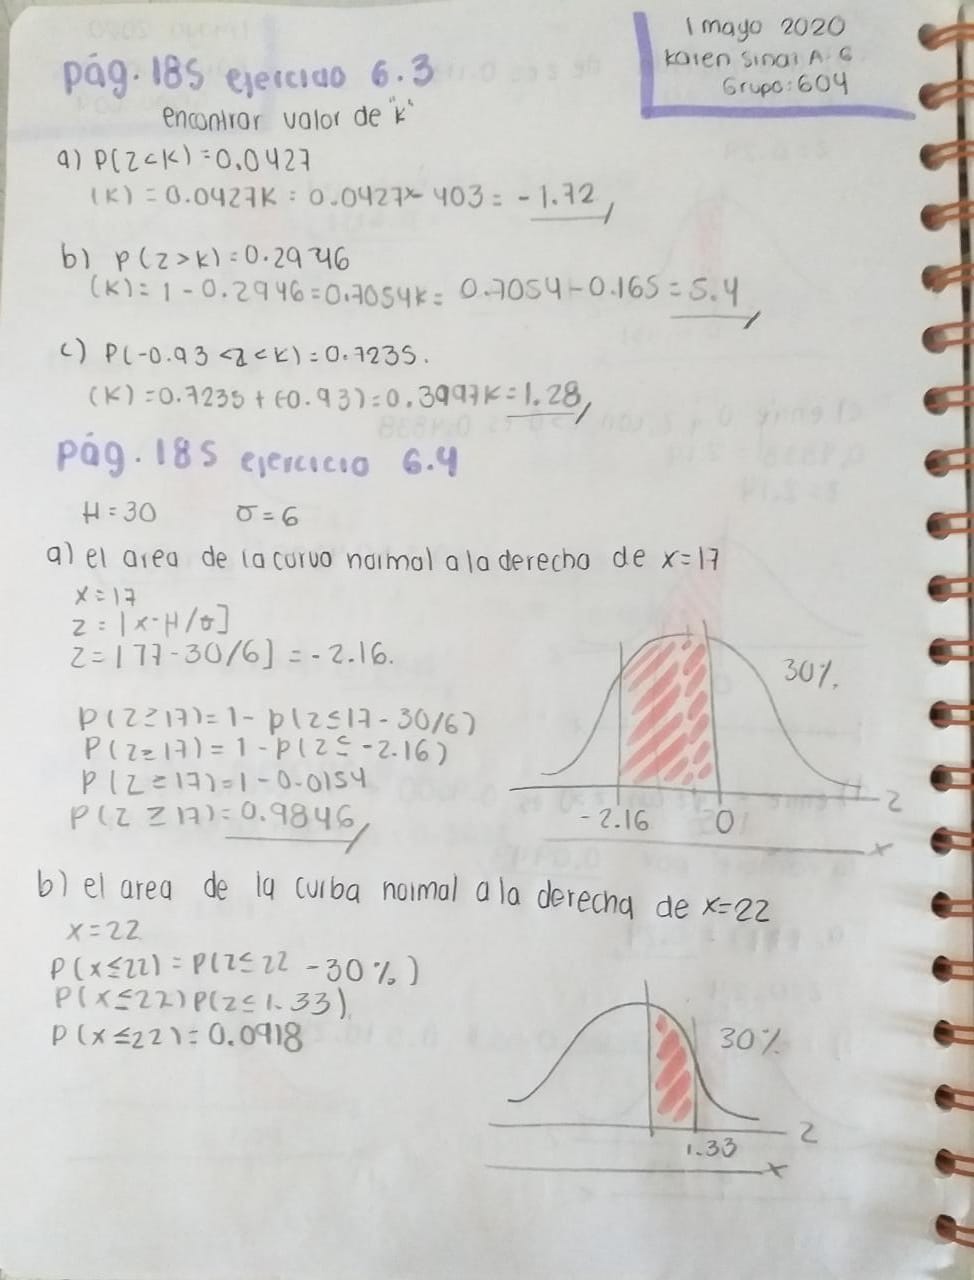 1 mayo 2020
Karen Sinai A. G
Grupo: 604
pág. 185 ejercicio 6.3
encontrar valor de "k"
a) P(Z<K) = 0.0427
(K) = 0.0427K = 0.0427x-403 = -1.72
b) P(Z>K) = 0.2946
(K) = 1 - 0.2946 = 0.7054K = 0.7054 - 0.165 = 5.4
c) P(-0.93 <Z<K) = 0.7235.
(K) = 0.7235 + (-0.93) = 0.3997K = 1.28
pág. 185 ejercicio 6.4
M = 30 σ = 6
a) el area de la curva normal a la derecha de x=17
x = 17
Z = [x-M/σ]
Z = [17-30/6] = -2.16.
P(Z≥17) = 1 - P(Z≤17-30/6)
P(Z≥17) = 1 - P(Z≤ -2.16)
P(Z≥17) = 1 - 0.0154
P(Z≥17) = 0.9846
30%
-2.16 0 Z
x
b) el area de la curba normal a la derecha de x=22
x = 22
P(x≤22) = P(Z≤22 - 30%)
P(x≤22) P(Z≤1.33)
P(x≤22) = 0.0918
30%
1.33 Z
x